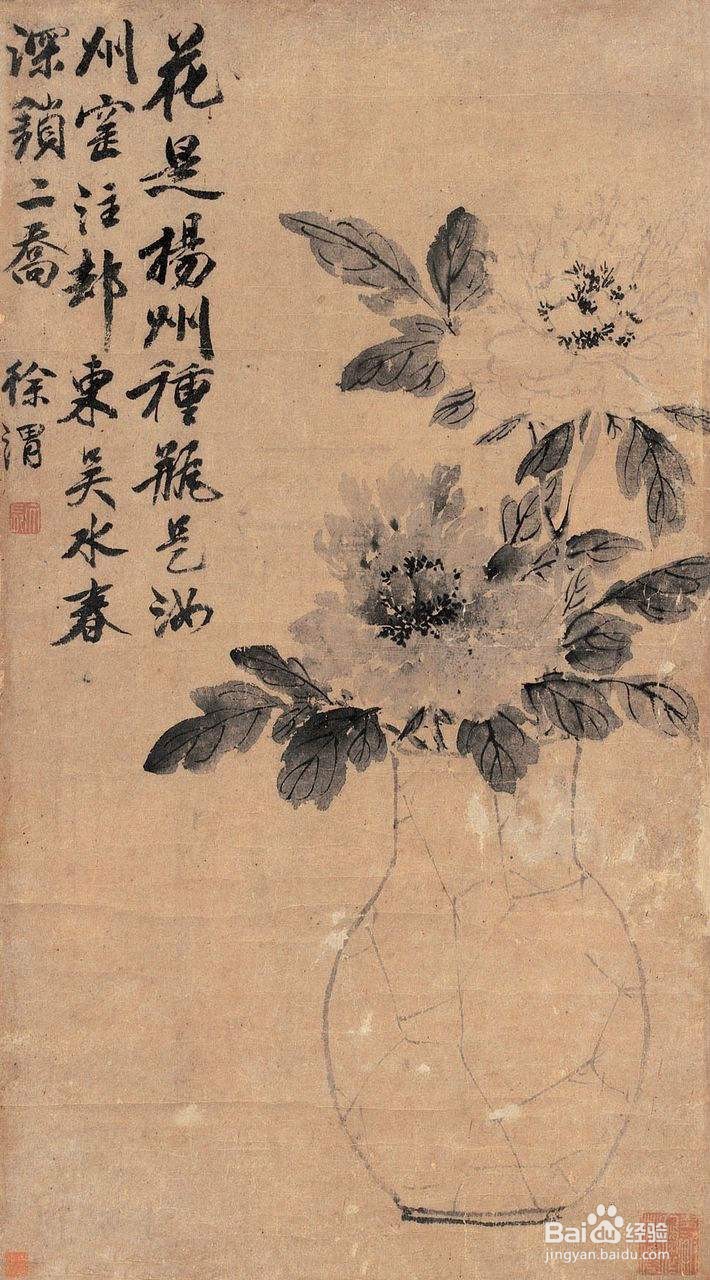 花是揚州種瓶是汝
州窑注却東吳水春
深鎖二喬
徐渭
Bai 经验
jingyan.baidu.com